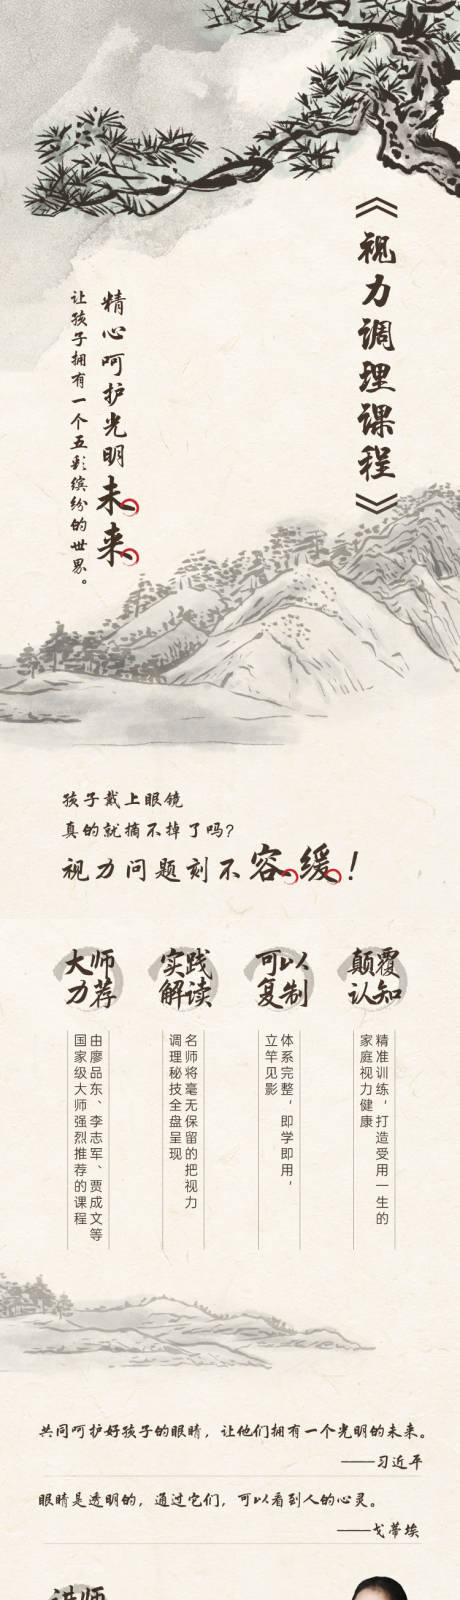 《视力调理课程》
精心呵护光明未来
让孩子拥有一个五彩缤纷的世界。
孩子戴上眼镜
真的就摘不掉了吗?
视力问题刻不容缓！
大师
力荐
由廖品东、李志军、贾成文等
国家级大师强烈推荐的课程
实践
解读
名师将毫无保留的把视力
调理秘技全盘呈现
可以
复制
体系完整，即学即用，
立竿见影
颠覆
认知
精准训练，打造受用一生的
家庭视力健康
共同呵护好孩子的眼睛，让他们拥有一个光明的未来。
——习近平
眼睛是透明的，通过它们，可以看到人的心灵。
——戈蒂埃
讲师